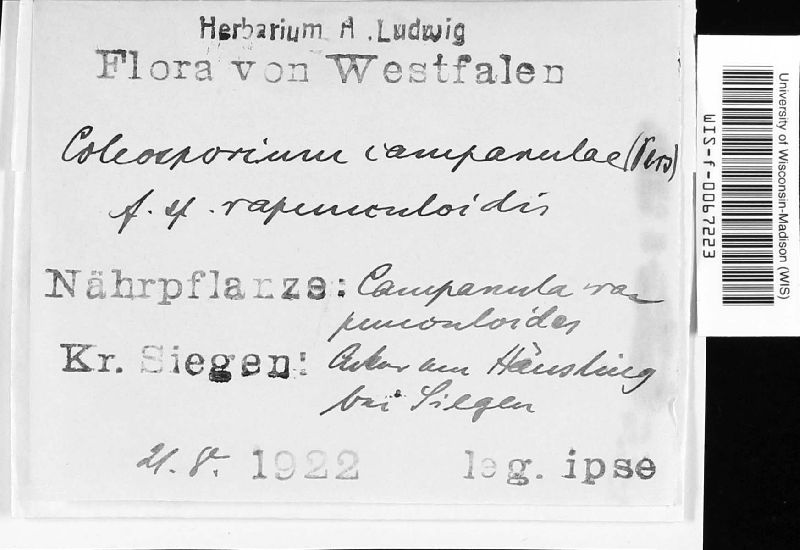 Herbarium A. Ludwig
Flora von Westfalen
Coleosporium campanulae (Pers)
f. sp. rapunculoidis
Nährpflanze: Campanula ra-
punculoides
Kr. Siegen: Acker am Häusling
bei Siegen
21. 8. 1922 leg. ipse
University of Wisconsin-Madison (WIS)
WIS-f-0067223